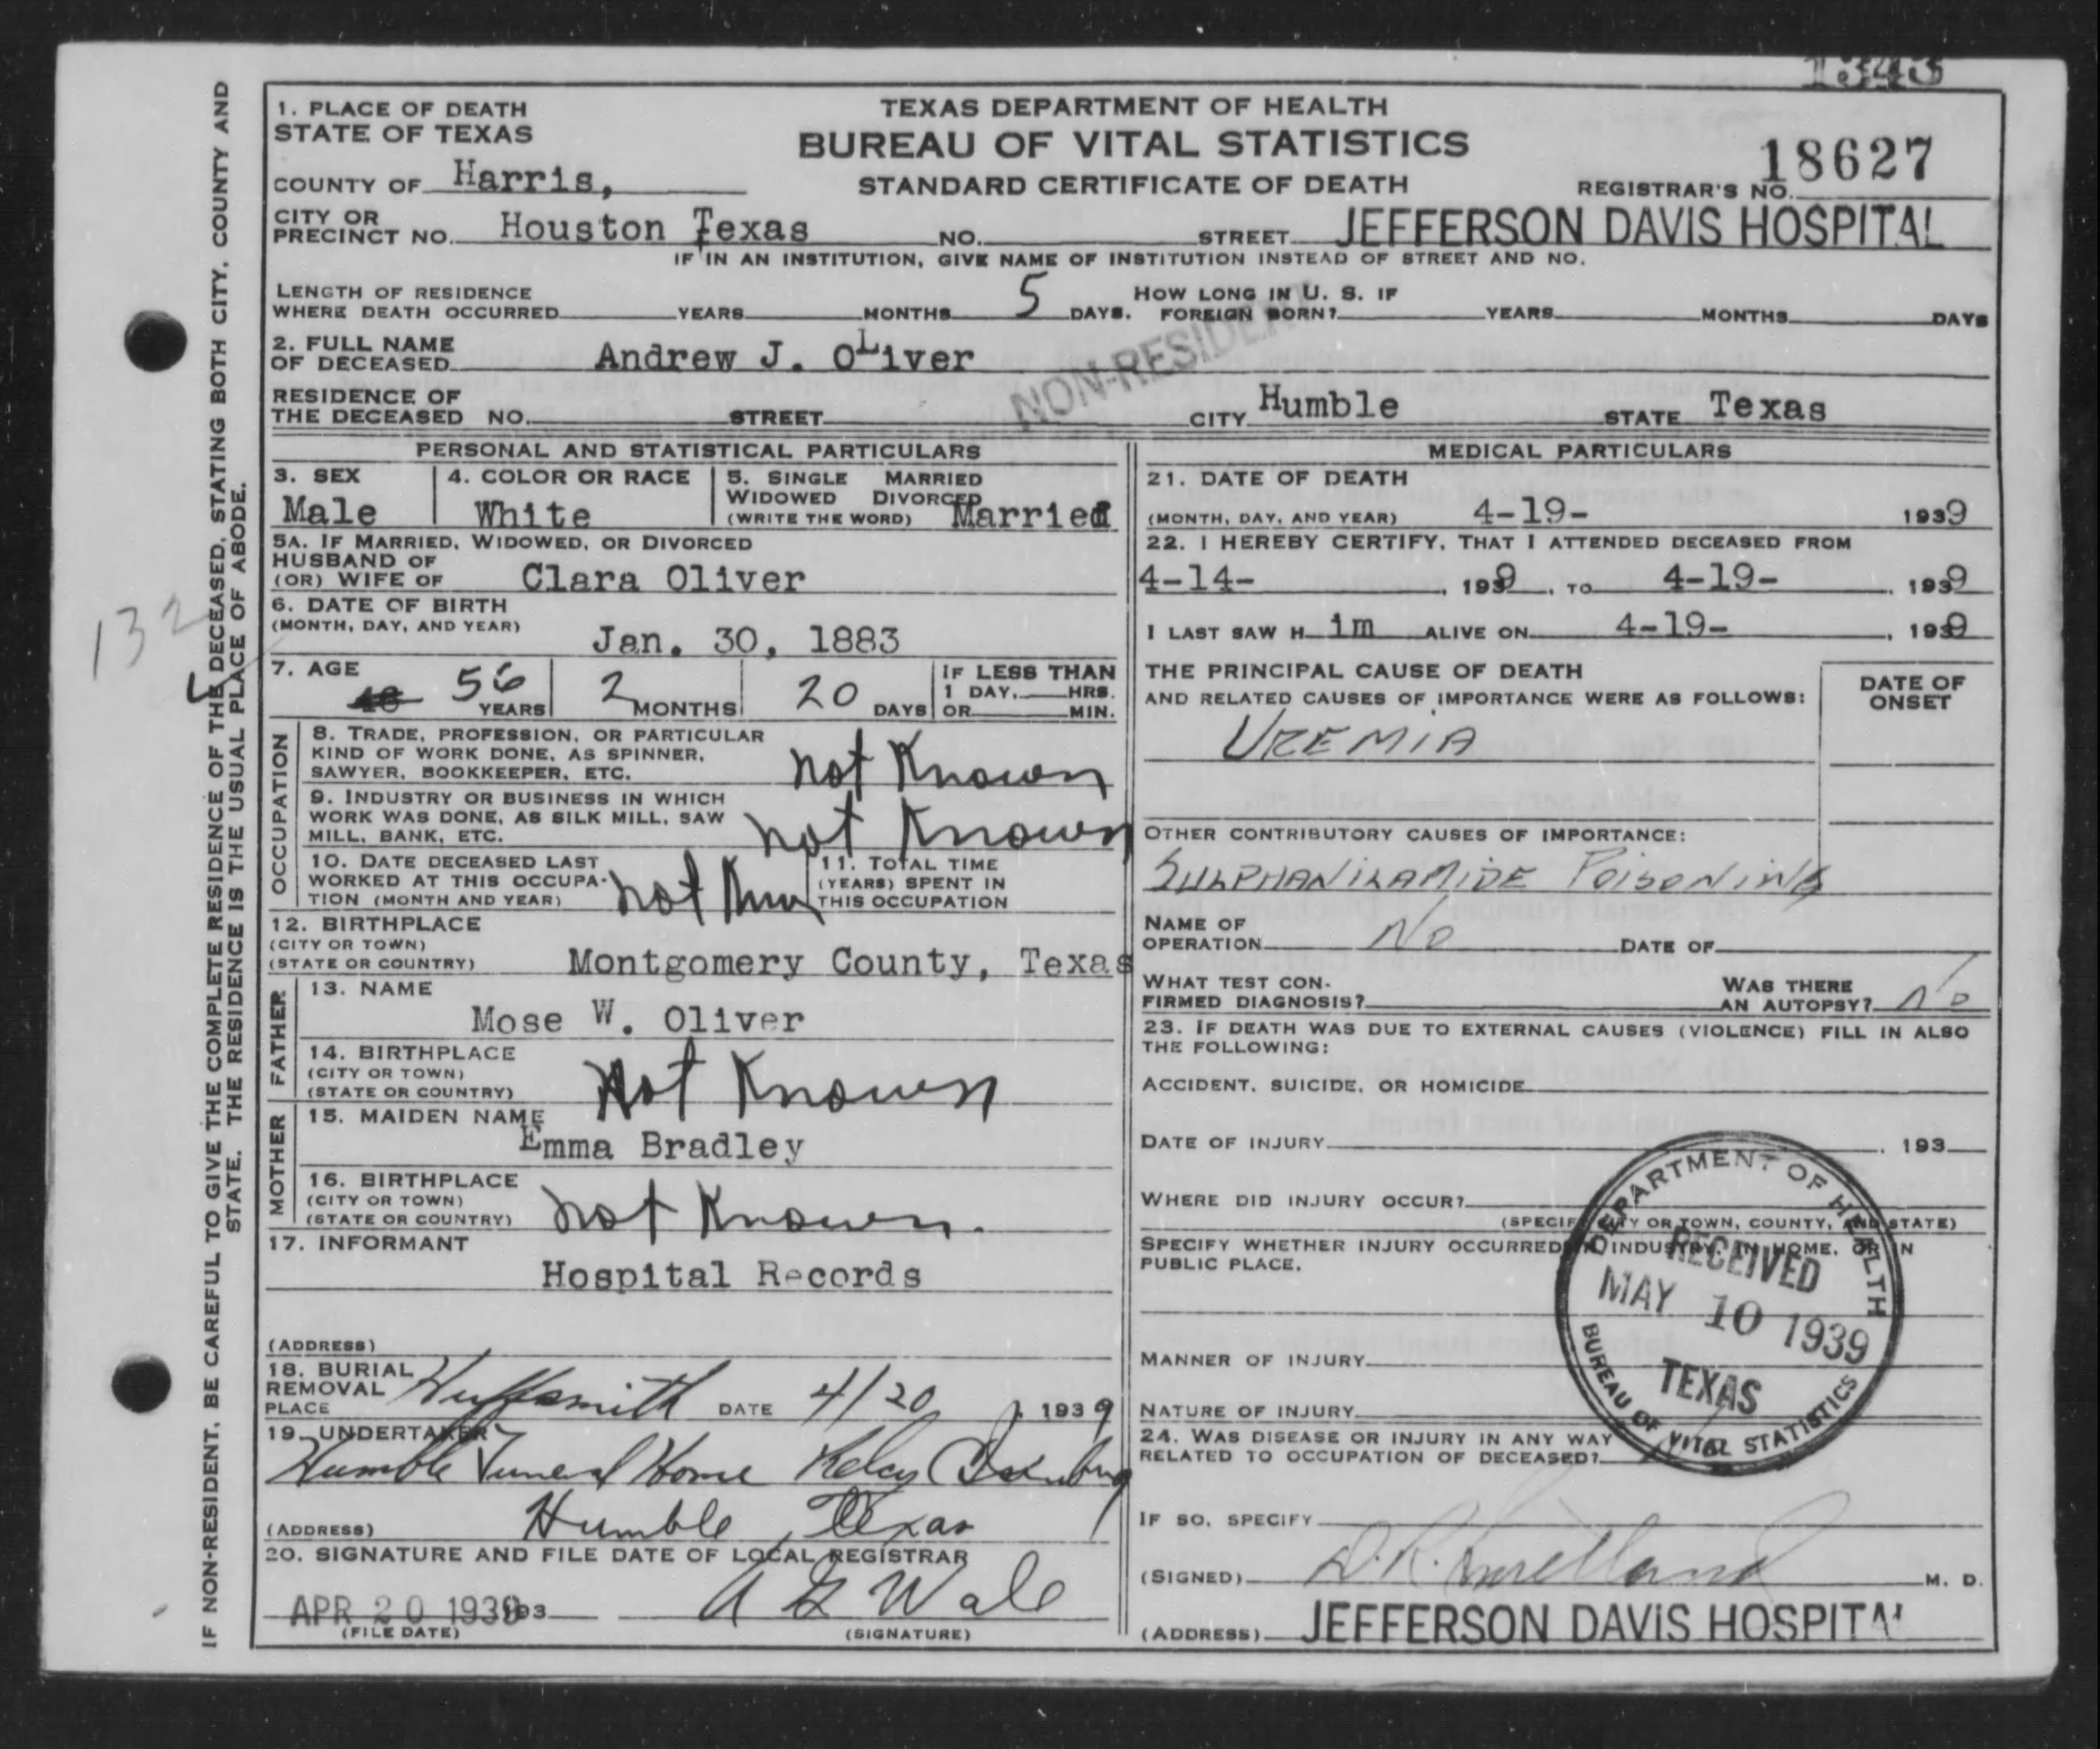 1343
1. PLACE OF DEATH
STATE OF TEXAS
COUNTY OF Harris,
TEXAS DEPARTMENT OF HEALTH
BUREAU OF VITAL STATISTICS
STANDARD CERTIFICATE OF DEATH
18627
REGISTRAR'S NO.
CITY OR
PRECINCT NO. Houston Texas NO. STREET JEFFERSON DAVIS HOSPITAL
IF IN AN INSTITUTION, GIVE NAME OF INSTITUTION INSTEAD OF STREET AND NO.
LENGTH OF RESIDENCE
WHERE DEATH OCCURRED YEARS MONTHS 5 DAYS. HOW LONG IN U. S. IF FOREIGN BORN? YEARS MONTHS DAYS
NON-RESIDENT
2. FULL NAME
OF DECEASED Andrew J. OLiver
RESIDENCE OF
THE DECEASED NO. STREET CITY Humble STATE Texas
PERSONAL AND STATISTICAL PARTICULARS
3. SEX
Male
4. COLOR OR RACE
White
5. SINGLE MARRIED
WIDOWED DIVORCED
(WRITE THE WORD) Married
5A. IF MARRIED, WIDOWED, OR DIVORCED
HUSBAND OF
(OR) WIFE OF Clara Oliver
6. DATE OF BIRTH
(MONTH, DAY, AND YEAR) Jan. 30, 1883
7. AGE
56 YEARS 2 MONTHS 20 DAYS
IF LESS THAN
1 DAY, HRS.
OR MIN.
OCCUPATION
8. TRADE, PROFESSION, OR PARTICULAR
KIND OF WORK DONE, AS SPINNER,
SAWYER, BOOKKEEPER, ETC. not Known
9. INDUSTRY OR BUSINESS IN WHICH
WORK WAS DONE, AS SILK MILL, SAW
MILL, BANK, ETC. not Known
10. DATE DECEASED LAST
WORKED AT THIS OCCUPA-
TION (MONTH AND YEAR) not
11. TOTAL TIME
(YEARS) SPENT IN
THIS OCCUPATION
12. BIRTHPLACE
(CITY OR TOWN)
(STATE OR COUNTRY) Montgomery County, Texas
FATHER
13. NAME
Mose W. Oliver
14. BIRTHPLACE
(CITY OR TOWN)
(STATE OR COUNTRY) Not Known
MOTHER
15. MAIDEN NAME
Emma Bradley
16. BIRTHPLACE
(CITY OR TOWN)
(STATE OR COUNTRY) not Known.
17. INFORMANT
Hospital Records
(ADDRESS)
18. BURIAL
REMOVAL
PLACE Huffsmith DATE 4/20, 1939
19. UNDERTAKER
Humble Funeral Home
(ADDRESS) Humble, Texas
20. SIGNATURE AND FILE DATE OF LOCAL REGISTRAR
APR 20 1939 193
(FILE DATE) (SIGNATURE)
MEDICAL PARTICULARS
21. DATE OF DEATH
(MONTH, DAY, AND YEAR) 4-19- 1939
22. I HEREBY CERTIFY, THAT I ATTENDED DECEASED FROM
4-14- , 1939, TO 4-19- , 1939
I LAST SAW H im ALIVE ON 4-19- , 1939
THE PRINCIPAL CAUSE OF DEATH
AND RELATED CAUSES OF IMPORTANCE WERE AS FOLLOWS:
DATE OF
ONSET
UREMIA
OTHER CONTRIBUTORY CAUSES OF IMPORTANCE:
SULPHANILAMIDE POISONING
NAME OF
OPERATION No DATE OF
WHAT TEST CON-
FIRMED DIAGNOSIS? WAS THERE
AN AUTOPSY? No
23. IF DEATH WAS DUE TO EXTERNAL CAUSES (VIOLENCE) FILL IN ALSO
THE FOLLOWING:
ACCIDENT, SUICIDE, OR HOMICIDE
DATE OF INJURY , 193
WHERE DID INJURY OCCUR?
(SPECIFY CITY OR TOWN, COUNTY, AND STATE)
SPECIFY WHETHER INJURY OCCURRED IN INDUSTRY, IN HOME, OR IN
PUBLIC PLACE.
MANNER OF INJURY
NATURE OF INJURY
24. WAS DISEASE OR INJURY IN ANY WAY
RELATED TO OCCUPATION OF DECEASED?
IF SO, SPECIFY
(SIGNED) M. D.
(ADDRESS) JEFFERSON DAVIS HOSPITAL
DEPARTMENT OF HEALTH
RECEIVED
MAY 10 1939
TEXAS
BUREAU OF VITAL STATISTICS
IF NON-RESIDENT, BE CAREFUL TO GIVE THE COMPLETE RESIDENCE OF THE DECEASED, STATING BOTH CITY, COUNTY AND
STATE. THE RESIDENCE IS THE USUAL PLACE OF ABODE.
132